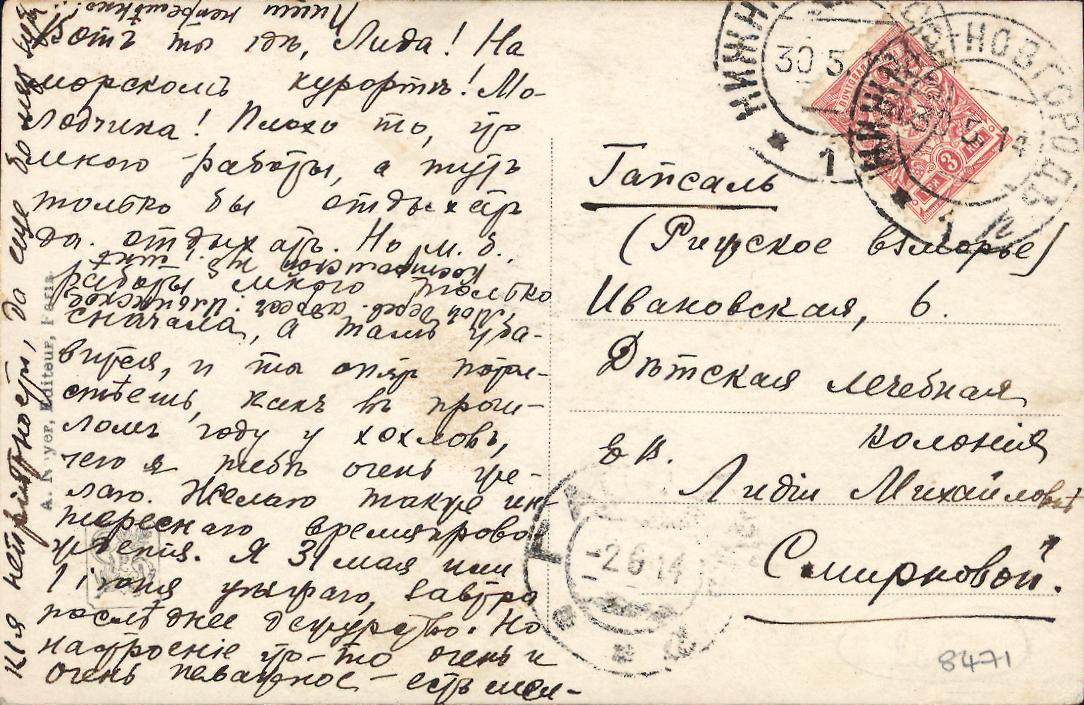 Вотъ ты гдѣ, Лида! На
морскомъ курортѣ! Мо-
лодчина! Плохо то, что
много работы, а тутъ
только бы отдыхать
да отдыхать. Но м. б.,
работы много только
сначала, а тамъ уба-
вится, и ты опять
какъ въ прош-
ломъ году у хохловъ,
чего я тебѣ очень же-
лаю. Желаю также ин-
тереснаго времяпрово-
жденія. Я 31 мая или
1 іюня уѣзжаю, завтра
послѣднее дежурство. Но
настроеніе что-то очень и
очень неважное – есть мел-
кія непріятности, да еще
Пиши непремѣнно!
A. Noyer, Editeur, Paris
Гапсаль
(Рижское взморье)
Ивановская, 6.
Дѣтская лечебная
колонія
Е. В.
Лидіи Михайловнѣ
Смирновой.
НИЖНІЙ-НОВГОРОДЪ
30 5
1
НИЖНІЙ
30 5 14
1
3
-2 6 14
8471